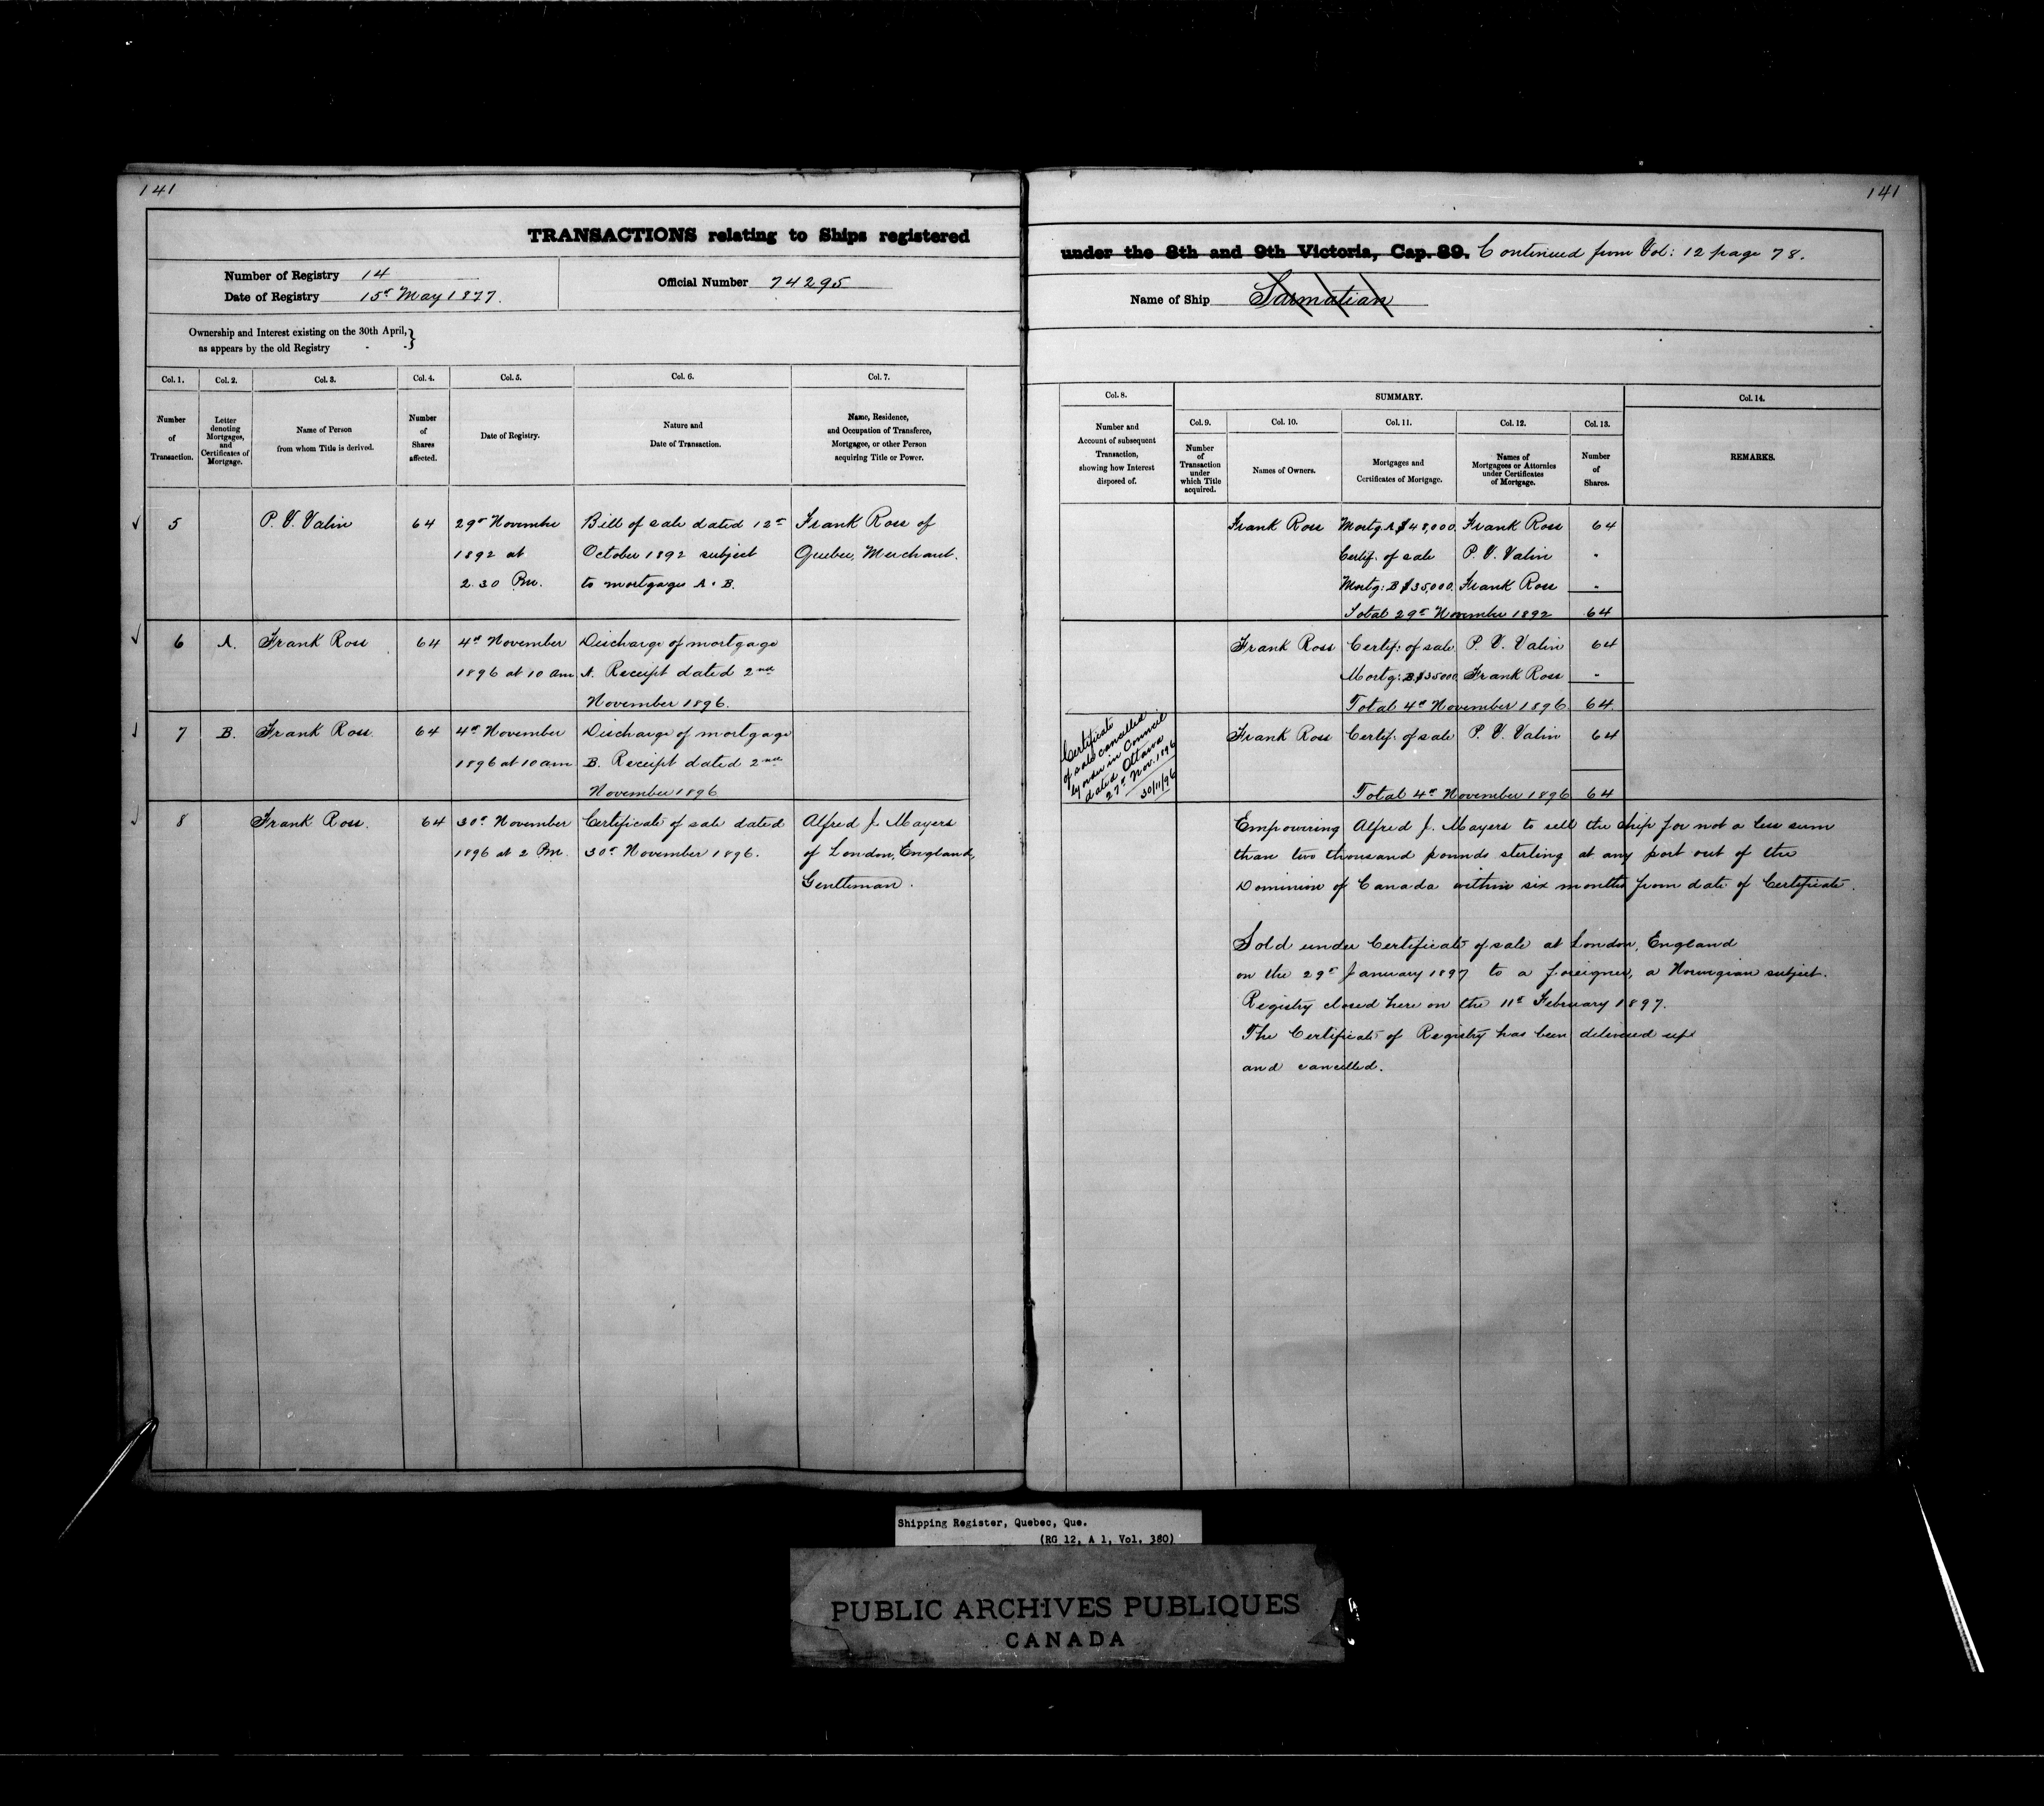 141
141
TRANSACTIONS relating to Ships registered
under the 8th and 9th Victoria, Cap. 89. Continued from Vol: 12 page 78.
Number of Registry 14
Date of Registry 15t May 1877.
Official Number 74295
Name of Ship Sarmatian
Ownership and Interest existing on the 30th April, }
as appears by the old Registry
Col. 1.
Number
of
Transaction.
Col. 2.
Letter
denoting
Mortgages,
and
Certificates of
Mortgage.
Col. 3.
Name of Person
from whom Title is derived.
Col. 4.
Number
of
Shares
affected.
Col. 5.
Date of Registry.
Col. 6.
Nature and
Date of Transaction.
Col. 7.
Name, Residence,
and Occupation of Transferee,
Mortgagee, or other Person
acquiring Title or Power.
Col. 8.
Number and
Account of subsequent
Transaction,
showing how Interest
disposed of.
SUMMARY.
Col. 9.
Number
of
Transaction
under
which Title
acquired.
Col. 10.
Names of Owners.
Col. 11.
Mortgages and
Certificates of Mortgage.
Col. 12.
Names of
Mortgagees or Attornies
under Certificates
of Mortgage.
Col. 13.
Number
of
Shares.
Col. 14.
REMARKS.
✓ 5 P. V. Valin 64 29t November Bill of sale dated 12t Frank Ross of
1892 at October 1892 subject Quebec, Merchant.
2.30 Pm. to mortgages A & B.
Frank Ross Mortg. A $48,000. Frank Ross 64
Certif. of sale P. V. Valin "
Mortg: B $35,000. Frank Ross "
Total 29t November 1892 64
✓ 6 A. Frank Ross 64 4t November Discharge of mortgage
1896 at 10 am A. Receipt dated 2nd
November 1896.
Frank Ross Certif: of sale P. V. Valin 64
Mortg: B $35000 Frank Ross "
Total 4t November 1896 64.
✓ 7 B. Frank Ross. 64 4t November Discharge of mortgage
1896 at 10 am B. Receipt dated 2nd
November 1896
Certificate
of sale cancelled
by order in Council
dated Ottawa
27t Nov. 1896
30/11/96
Frank Ross Certif: of sale P. V. Valin 64
Total 4t November 1896 64
✓ 8 Frank Ross. 64 30t November Certificate of sale dated Alfred J. Mayers
1896 at 2 Pm. 30t November 1896. of London, England,
Gentleman.
Empowering Alfred J. Mayers to sell the ship for not a less sum
than two thousand pounds sterling at any port out of the
Dominion of Canada within six months from date of Certificate.
Sold under Certificate of sale at London, England
on the 29t January 1897 to a foreigner, a Norwegian subject.
Registry closed here on the 11t February 1897.
The Certificate of Registry has been delivered up
and cancelled.
Shipping Register, Quebec, Que.
(RG 12, A 1, Vol. 380)
PUBLIC ARCHIVES PUBLIQUES
CANADA